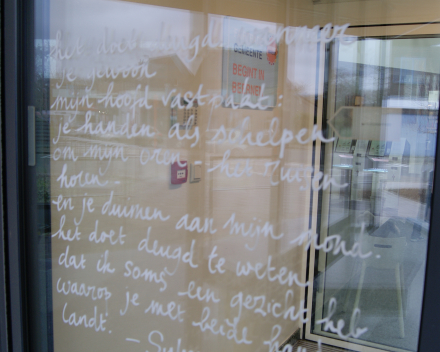 het doet deugd wanneer
je gewoon
mijn hoofd vastpakt:
je handen als schelpen
om mijn oren - het ruisen
horen -
en je duimen aan mijn mond.
het doet deugd te weten
dat ik soms een gezicht heb
waarop je met beide han
landt.
GEMEENTE
BEGINT IN